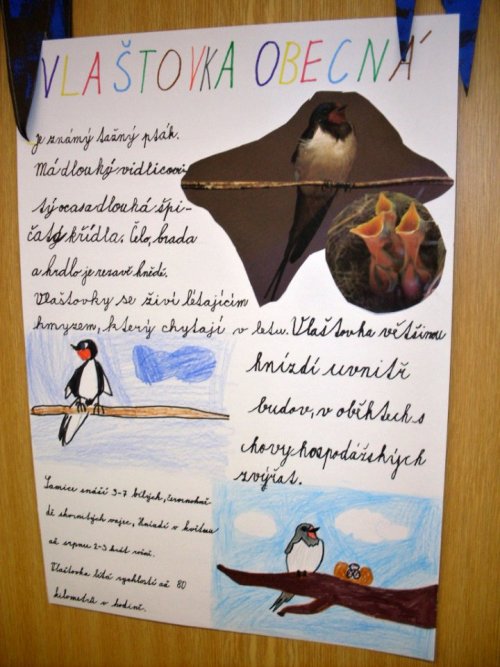 VLAŠTOVKA OBECNÁ
je známý tažný pták.
Má dlouhý vidlicovi-
tý ocas a dlouhá špi-
čatá křídla. Čelo, brada
a hrdlo je rezavě hnědé.
Vlaštovky se živí létajícím
hmyzem, který chytají v letu. Vlaštovka většinou
hnízdí uvnitř
budov, v oběktech s
chovy hospodářských
zvýřat.
Samice snáší 3-7 bílých, červenohně
dě skvrnitých vajec, Hnízdí v květnu
až srpnu 2-3 krát ročně.
Vlaštovka létá rychlostí až 80
kilometrů v hodině.